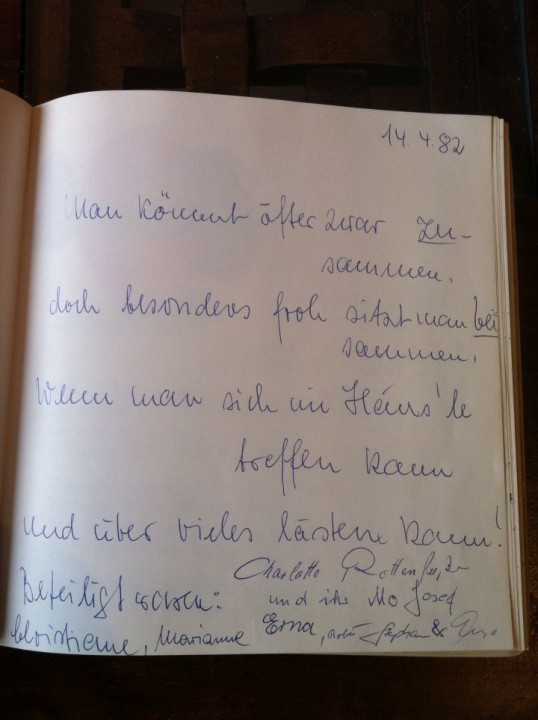 14. 4. 82
Man kömmt öfter zwar zu-
sammen.
doch besonders froh sitzt man bei
sammen,
Wenn man sich im Häus'le
treffen kann
und über vieles lästern kann!
Charlotte
Beteiligt waren: und ihr Mo Josef
Christiane, Marianne Erna, Stephan &